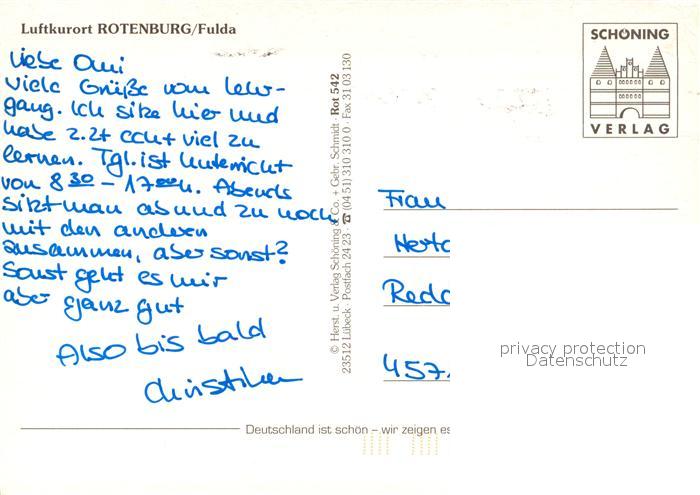 Luftkurort ROTENBURG/Fulda
Liebe Omi
viele Grüße vom Lehr-
gang. Ich sitze hier und
habe z.Zt echt viel zu
lernen. Tgl. ist Unterricht
von 8 30 – 17 00 h. Abends
sitzt man ab und zu noch
mit den anderen
zusammen, aber sonst?
Sonst geht es mir
aber ganz gut
Also bis bald
© Herst. u. Verlag Schöning & Co. + Gebr. Schmidt · Rot 542
23512 Lübeck · Postfach 24 23 · ☎ (04 51) 310 310 0 · Fax 31 03 130
SCHÖNING
VERLAG
Frau
457
privacy protection
Datenschutz
Deutschland ist schön – wir zeigen es